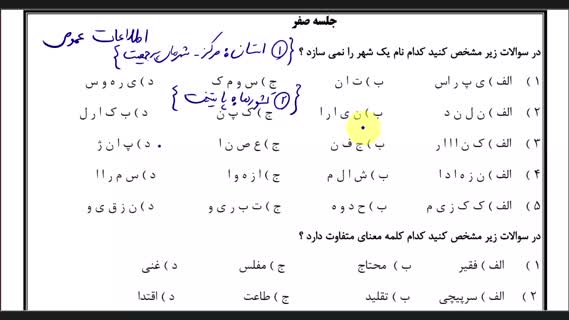 جلسه صفر
اطلاعات عمومی
در سوالات زیر مشخص کنید کدام نام یک شهر را نمی سازد ؟ ① استان ها مرکز - شهرهای پرجمعیت
۱ ) الف ) ی پ ر ا س ب ) ت ا ن ج ) س و م ک د ) ی ر ه و س
② کشورها و پایتخت
۲ ) الف ) ن ل ن د ب ) ن ی ا ر ا ج ) ک پ ن د ) ب ک ا ر ل
۳ ) الف ) ک ن ا ا ا ر ب ) ج ف ن ج ) ع ص ن ا د ) پ ا ن ژ
۴ ) الف ) ن ز ه ا د ا ب ) ش ا ل م ج ) ا ز ه و ا د ) س م ر ا ا
۵ ) الف ) ک ک ز ی م ب ) ح د و ه ج ) ت ب ر ی و د ) ن ز ق ی و
در سوالات زیر مشخص کنید کدام کلمه معنای متفاوت دارد ؟
۱ ) الف ) فقیر ب ) محتاج ج ) مفلس د ) غنی
۲ ) الف ) سرپیچی ب ) تقلید ج ) طاعت د ) اقتدا